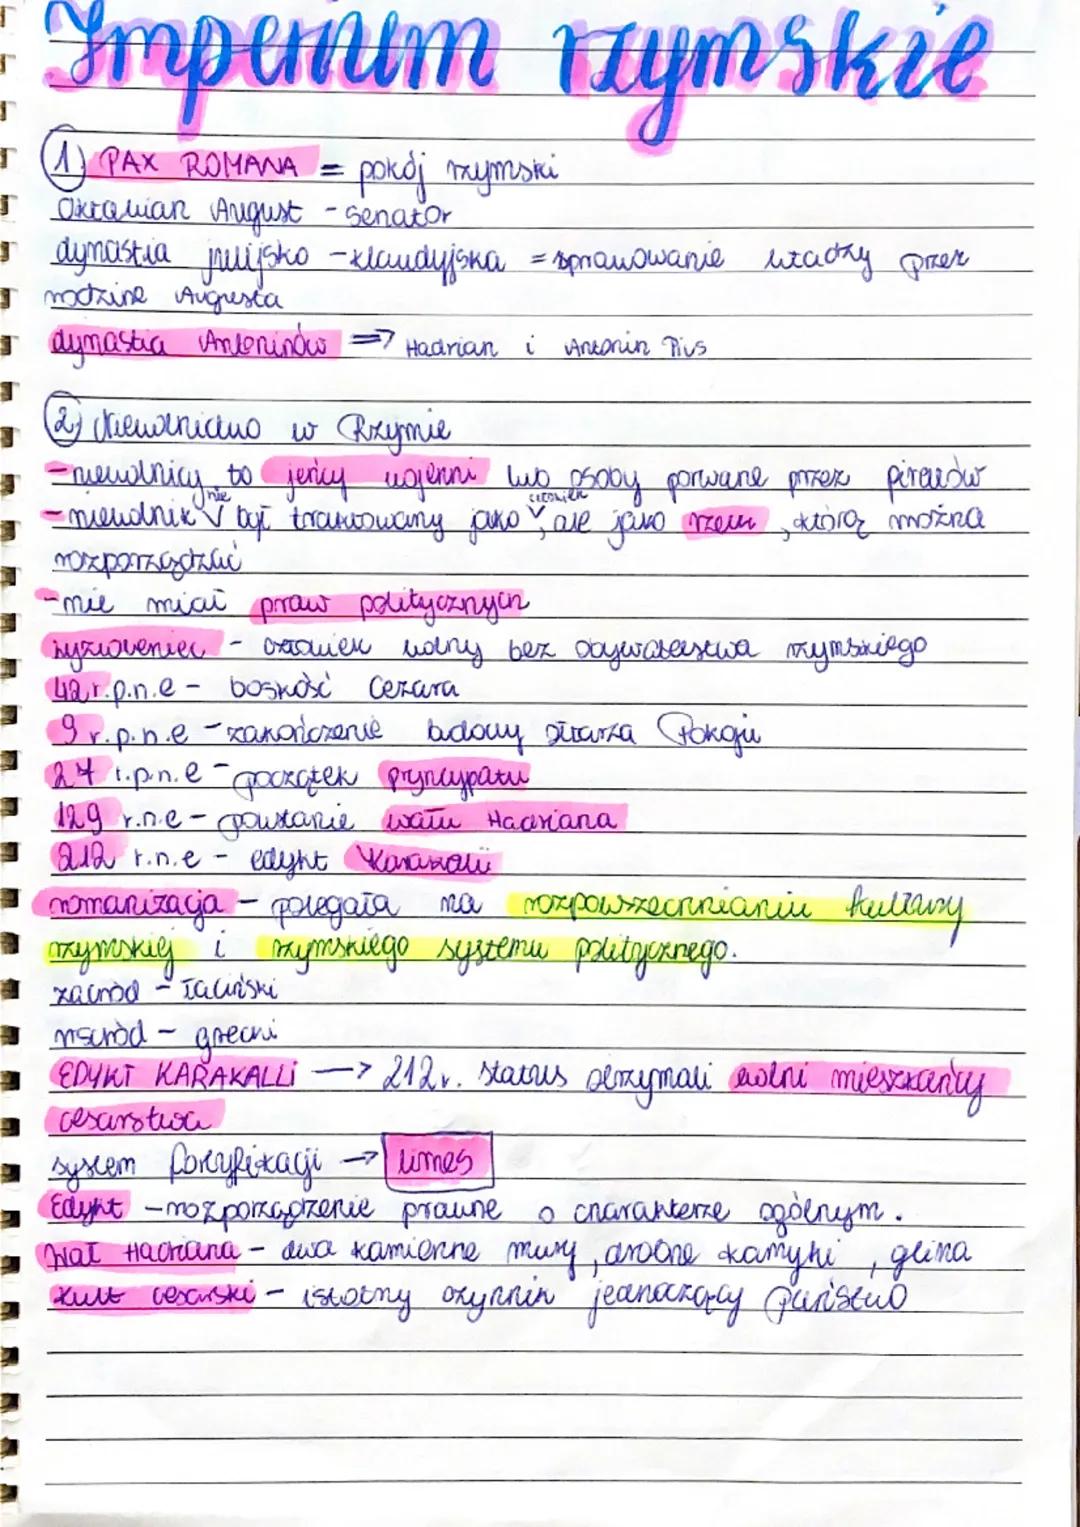 Imperium rzymskie
1) PAX ROMANA = pokój rzymski
Oktawian August - senator
dynastia julijsko - klaudyjska = sprawowanie władzy przez
rodzinę Augusta
dynastia Antoninów => Hadrian i Antonin Pius
2) Niewolnictwo w Rzymie
- niewolnicy to jeńcy wojenni lub osoby porwane przez piratów
- niewolnik nie był traktowany jako człowiek, ale jako rzecz, którą można
rozporządzać
- nie miał praw politycznych
wyzwoleniec - człowiek wolny bez obywatelstwa rzymskiego
42 r.p.n.e - boskość Cezara
9 r.p.n.e - zakończenie budowy ołtarza Pokoju
27 r.p.n.e - początek pryncypatu
129 r.n.e - powstanie wału Hadriana
212 r.n.e - edykt Karakalli
romanizacja - polegała na rozpowszechnianiu kultury
rzymskiej i rzymskiego systemu politycznego.
zachód - łaciński
wschód - grecki
EDYKT KARAKALLI -> 212r. status otrzymali wolni mieszkańcy
cesarstwa
system fortyfikacji -> limes
Edykt - rozporządzenie prawne o charakterze ogólnym.
Wał Hadriana - dwa kamienne mury, drobne kamyki, glina
kult cesarski - istotny czynnik jednoczący państwo